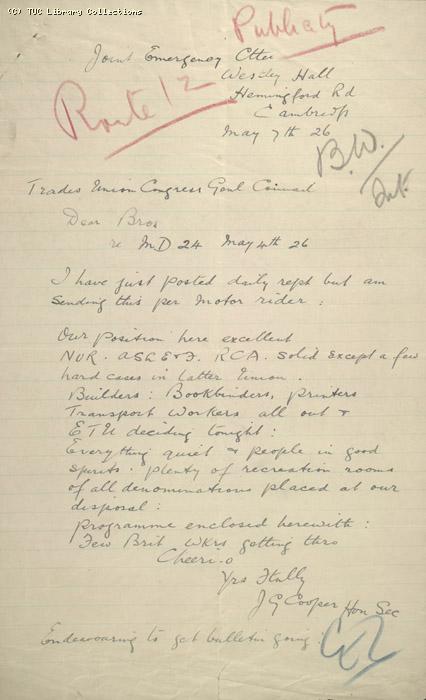 (c) TUC Library Collections
Publicity
Joint Emergency Cttee
Wesley Hall
Hemingford Rd
Cambredge
May 7th 26
Route 12
B.W.
Int.
Trades Union Congress Genl Council
Dear Bros
re MD 24 May 4th 26
I have just posted daily rept but am
sending this per motor rider :
Our position here excellent
NUR. ASLE&F. RCA. solid except a few
hard cases in latter Union.
Builders: Bookbinders, printers
Transport workers all out &
ETU deciding tonight:
Everything quiet & people in good
spirits. plenty of recreation rooms
of all denominations placed at our
disposal:
programme enclosed herewith:
Few Brit Wkrs getting thro
Cheeri-o
Yrs Ftally
J G Cooper Hon Sec
Endeavouring to get bulletin going: